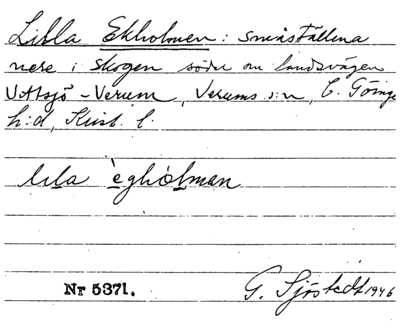 Lilla Ekholmen: småställena
nere i skogen söder om landsvägen
Vittsjö - Verum, Verums s:n, V. Göinge
h:d, Krist. l.
lıla èghòlman
Nr 5371.
G. Sjöstedt 1946